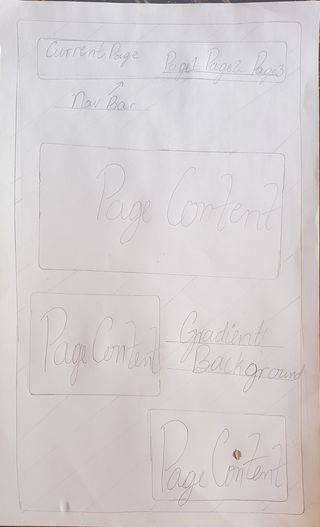 Current Page Page1 Page2 Page3
Nav Bar
Page Content
Page Content
Gradient
Background
Page Content